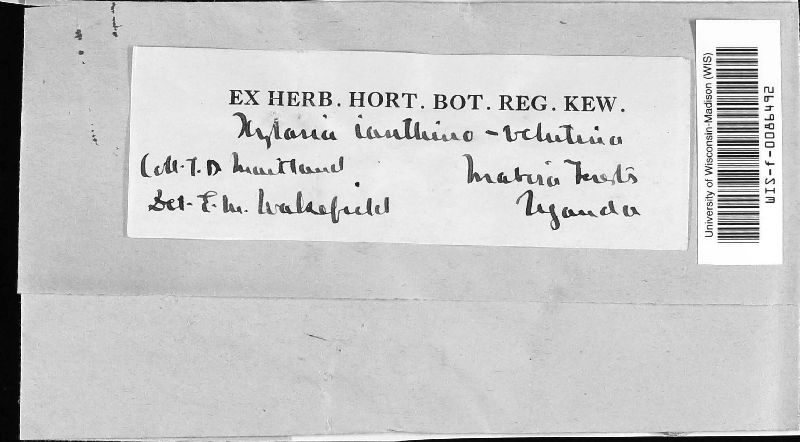 EX HERB. HORT. BOT. REG. KEW.
Xylaria ianthino-velutina
Coll. T. D. Maitland
Mabira Forests
Det. E. M. Wakefield
Uganda
University of Wisconsin-Madison (WIS)
WIS-f-0086492